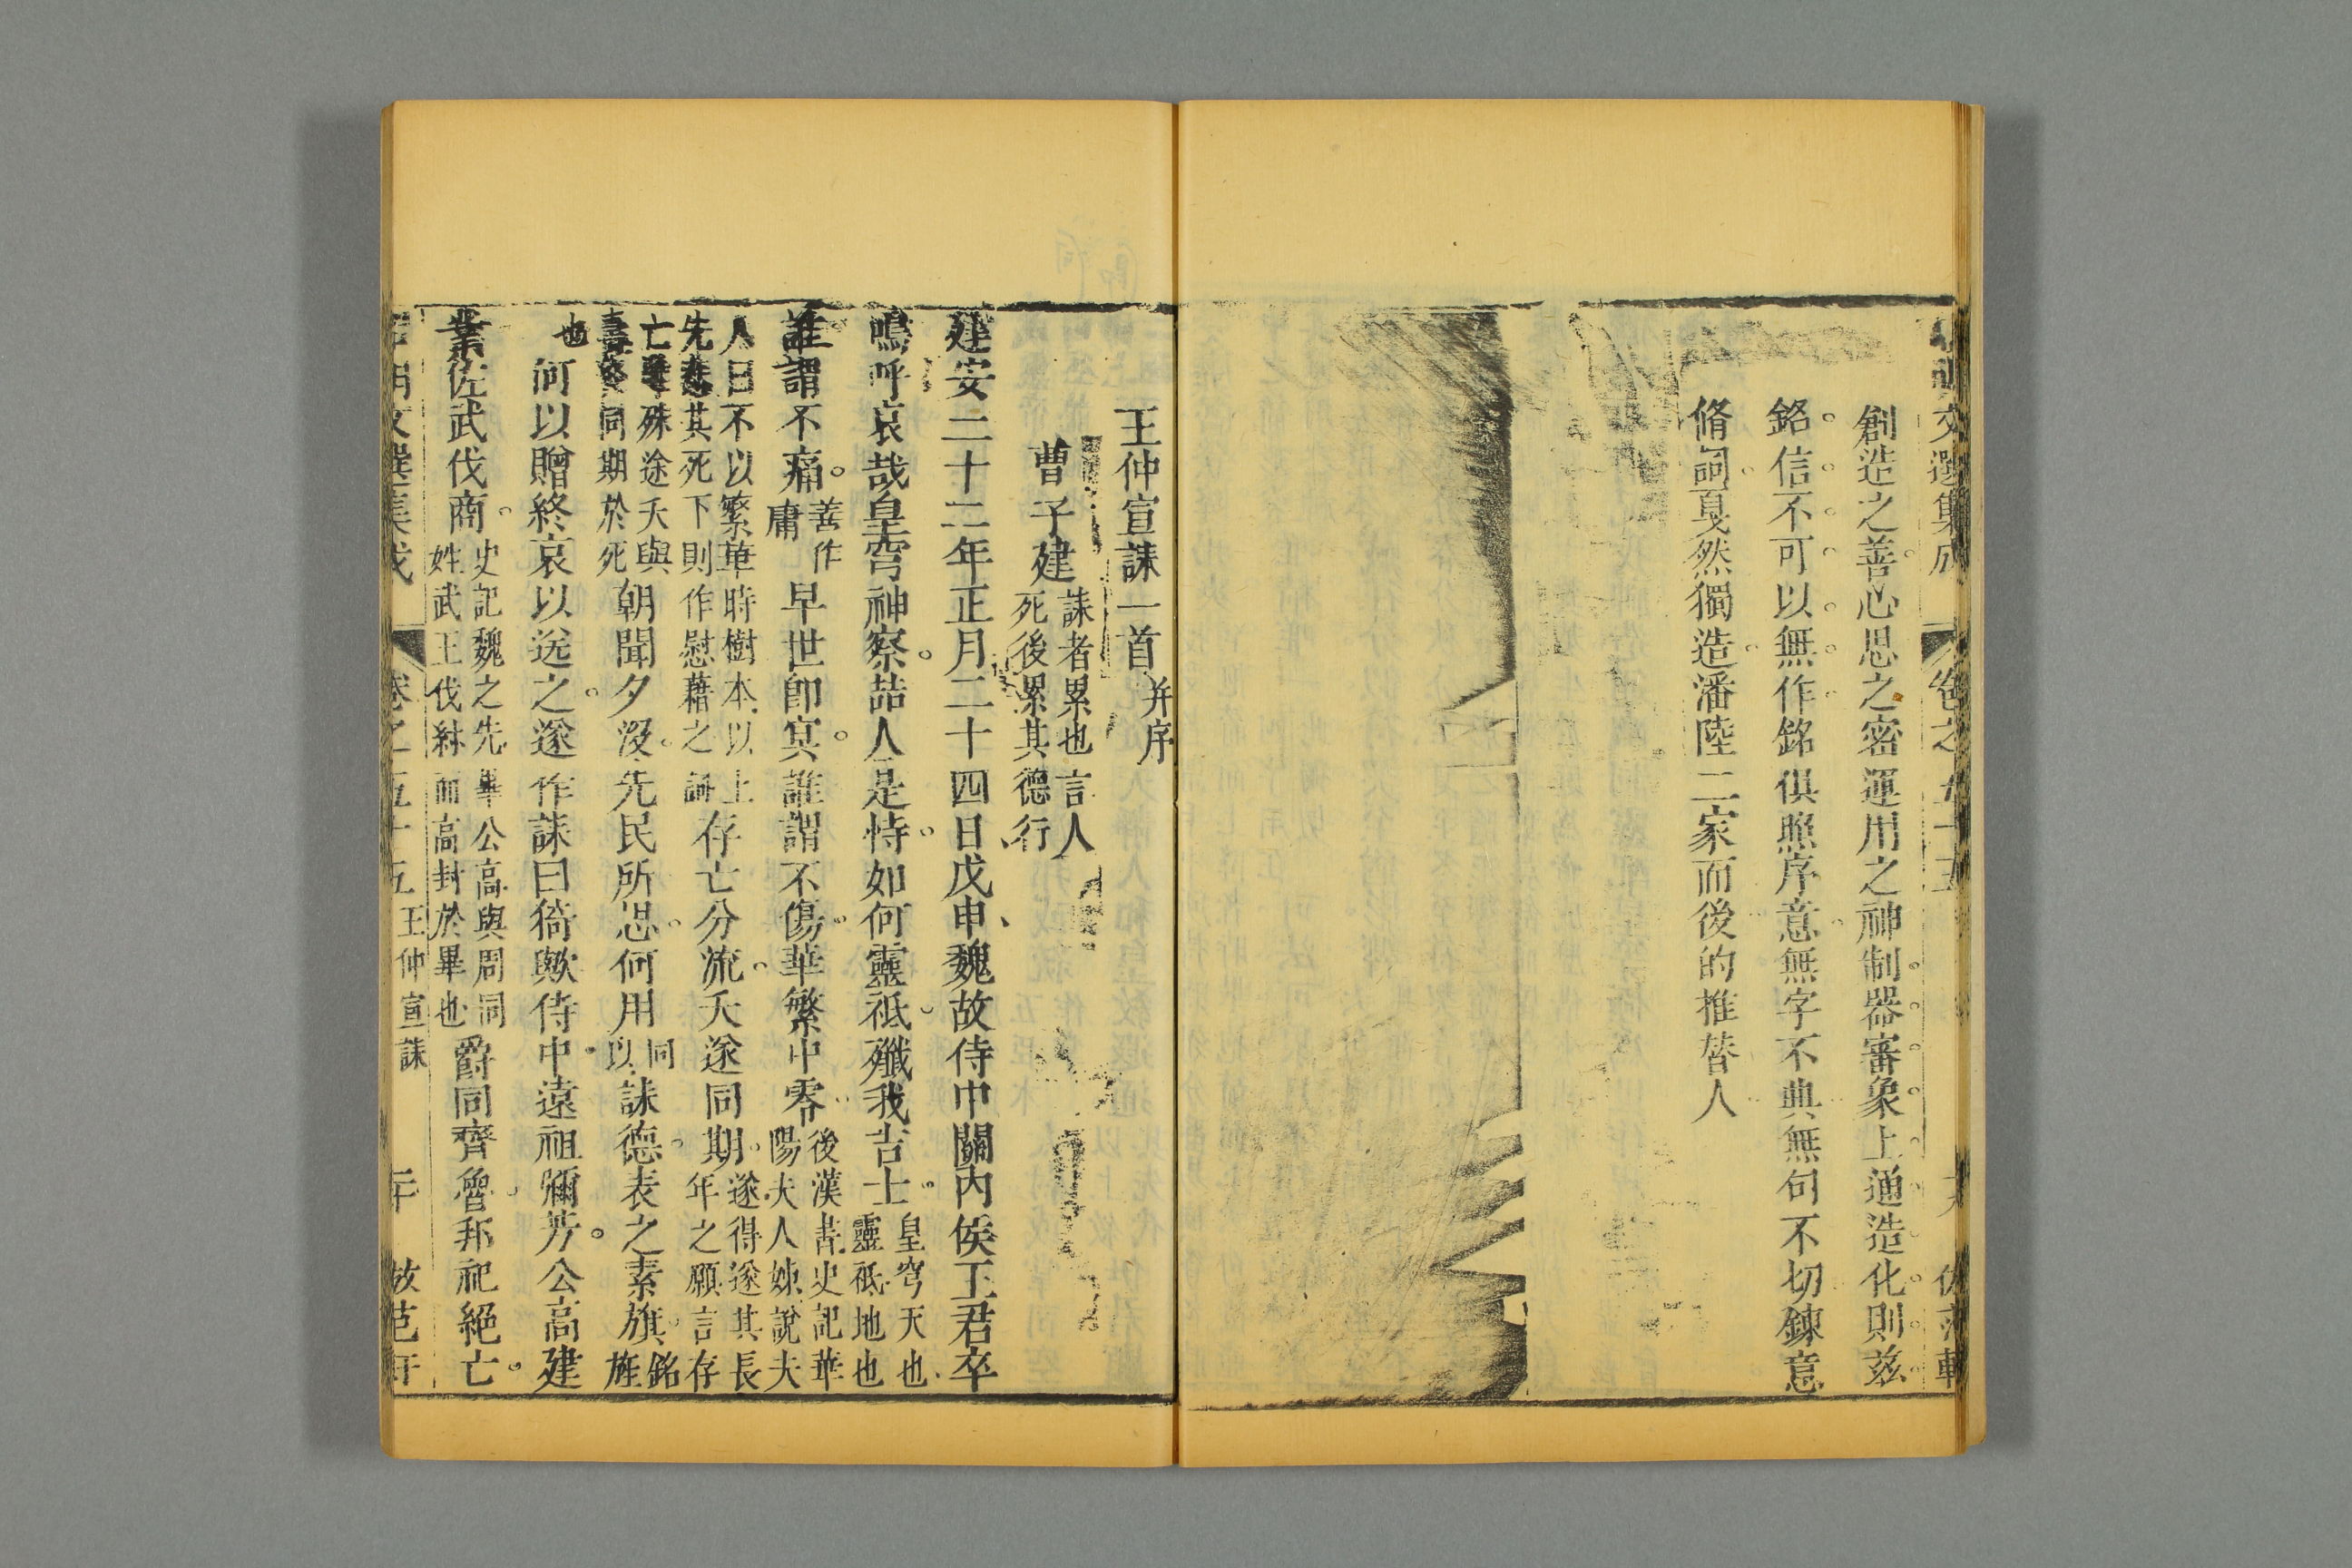 文選集成
卷之五十五
創造之善心思之密運用之神制器審象上通造化則茲
銘信不可以無作銘俱照序意無字不典無句不切鍊意
脩詞戛然獨造潘陸二家而後的推替人
王仲宣誄一首 并序
曹子建 誄者累也言人
死後累其德行
建安二十二年正月二十四日戊申魏故侍中關內侯王君卒
嗚呼哀哉皇穹神察喆人是恃如何靈祗殲我吉士 皇穹天也
靈祗地也
誰謂不痛 善作
庸
早世卽冥誰謂不傷華繁中零 後漢書史記華
陽夫人姊說夫
人曰不以繁華時樹本以上
先其死下則作慰藉之詞
存亡分流夭遂同期 遂得遂其長
年之願言存
亡殊途夭與
壽同期於死
朝聞夕沒先民所思何用 同
以
誄德表之素旗 銘
旌
也
何以贈終哀以送之遂作誄曰猗歟侍中遠祖彌芳公高建
業佐武伐商 史記魏之先畢公高與周同
姓武王伐紂而高封於畢也
爵同齊魯邦祀絕亡
文選集成
卷之五十五
王仲宣誄